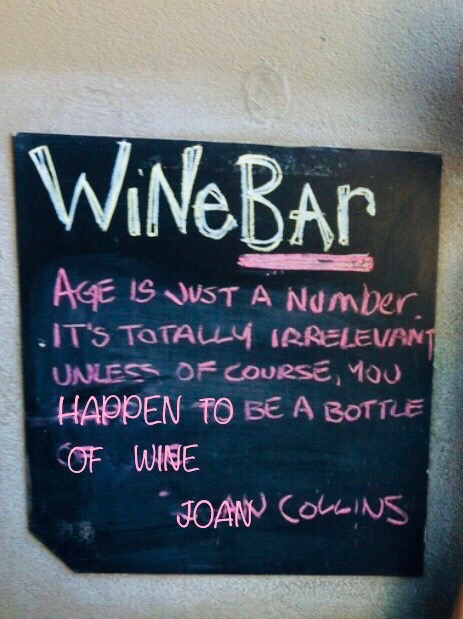 WiNeBAr
AGE IS JUST A NUmber.
IT'S TOTALLY IRRELEVANT
UNLESS OF COURSE, YOU
HAPPEN TO BE A BOTTLE
OF WINE
JOAN COLLINS